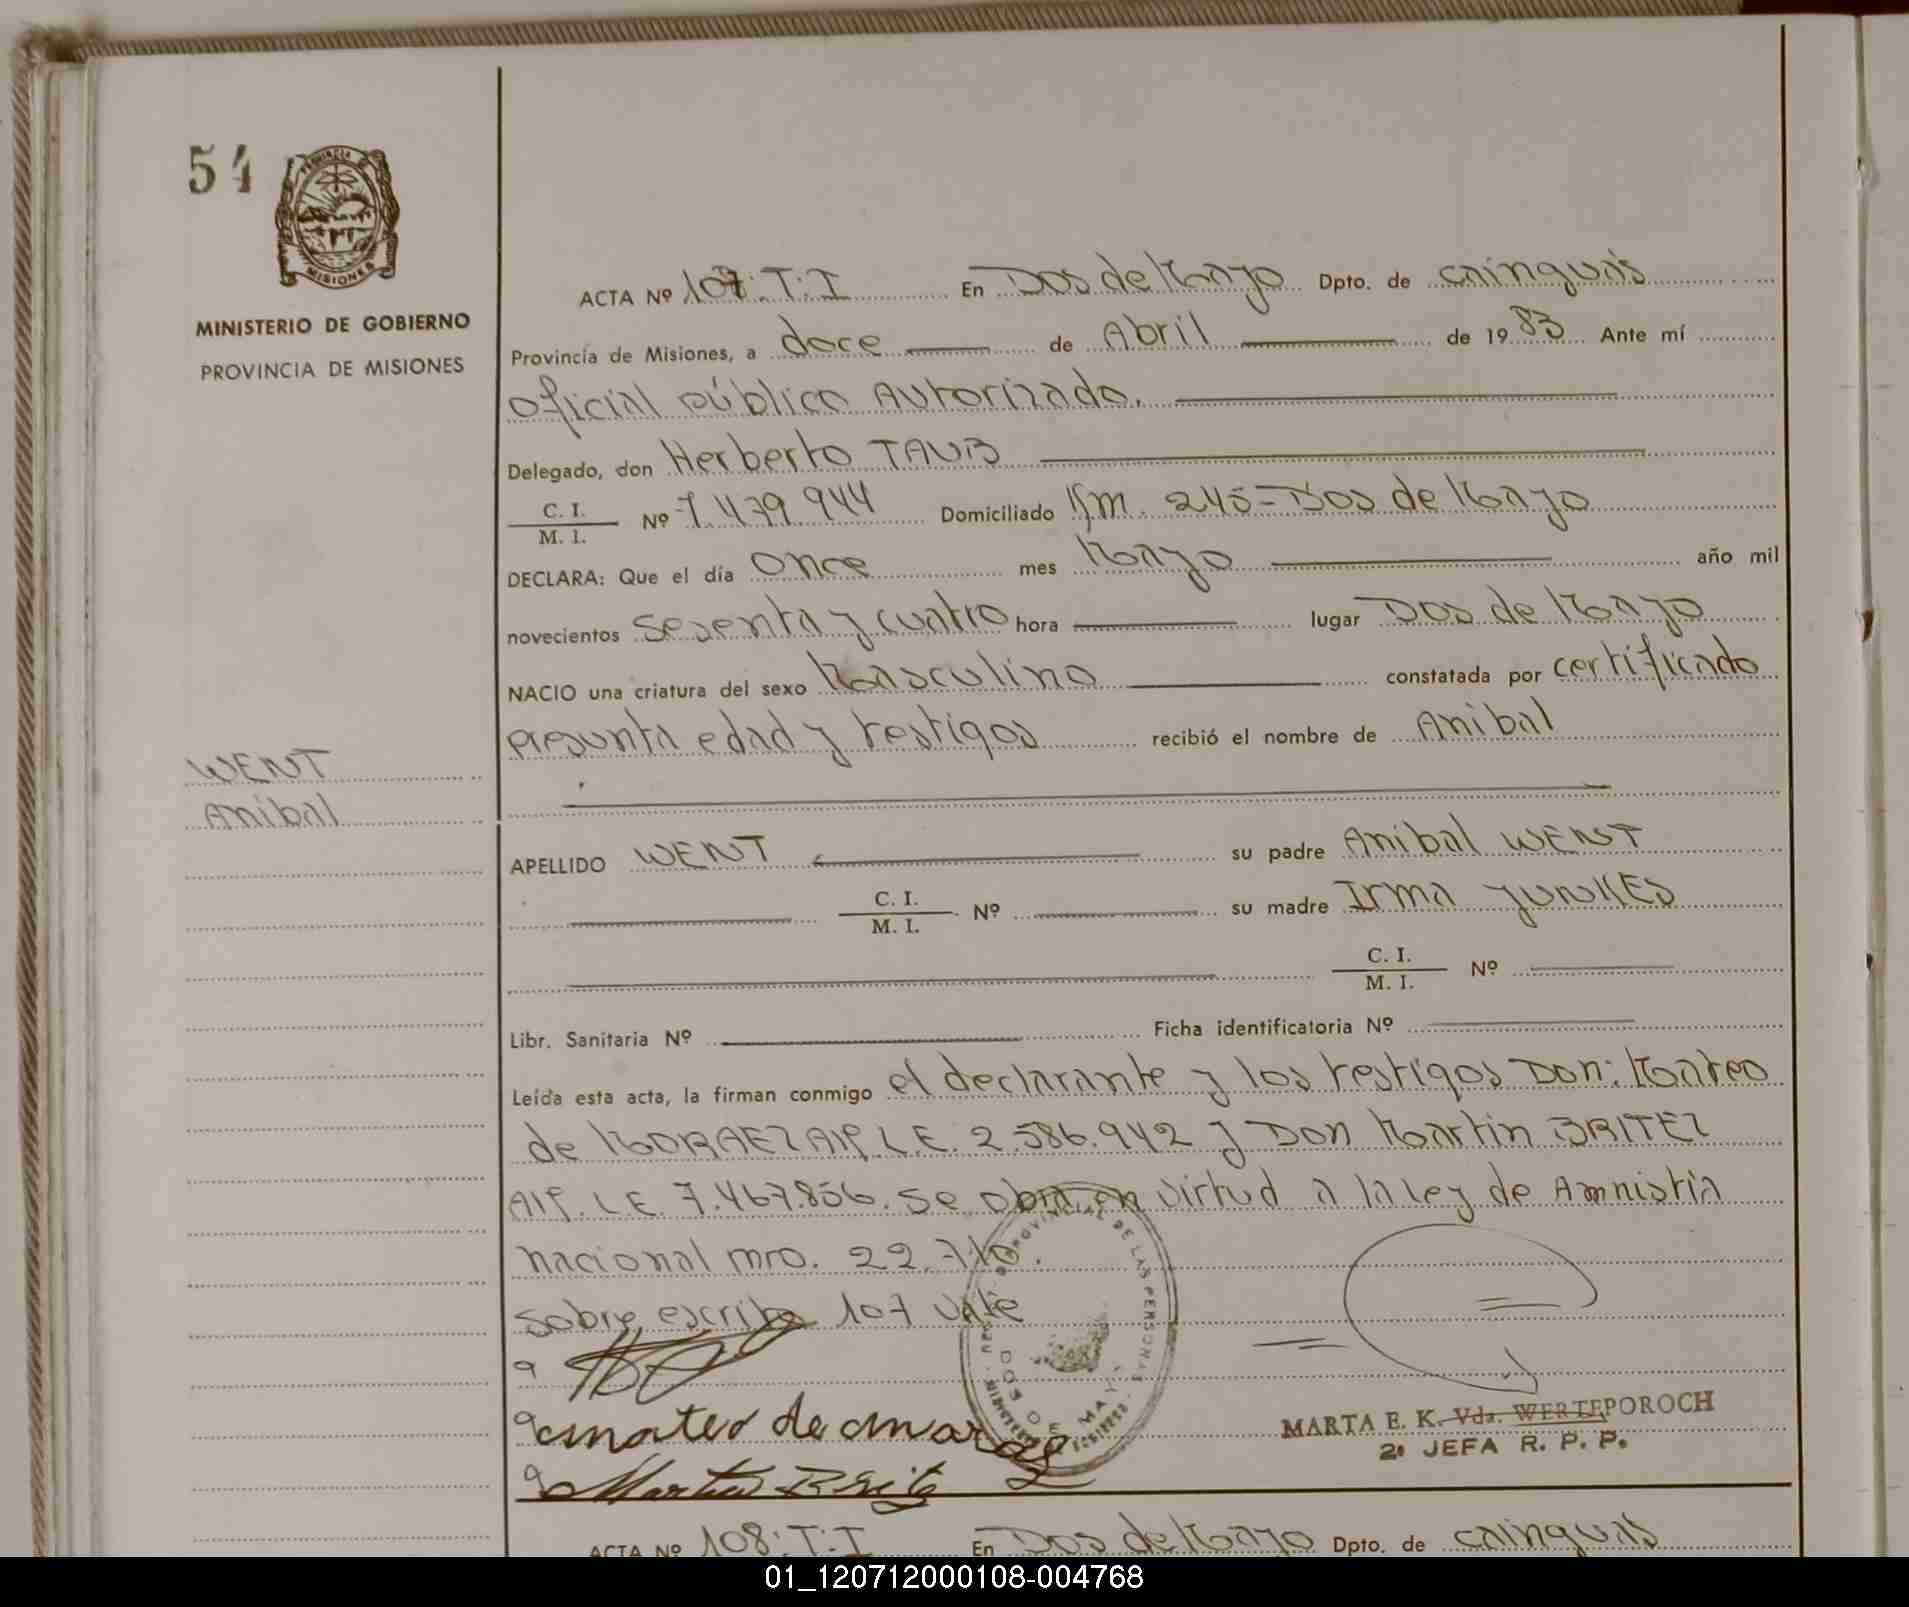 54
PROVINCIA DE
MISIONES
MINISTERIO DE GOBIERNO
PROVINCIA DE MISIONES
WENT
Anibal
ACTA Nº 107:T:I En Dos de Mayo Dpto. de cainguás
Provincia de Misiones, a doce de Abril de 1983 Ante mí
oficial público Autorizado.
Delegado, don Herberto TAUB
C. I. / M. I. Nº 7.479.944 Domiciliado Km. 245=Dos de Mayo
DECLARA: Que el día once mes Mayo año mil
novecientos sesenta y cuatro hora lugar Dos de Mayo
NACIO una criatura del sexo Masculino constatada por certificado
presunta edad y testigos recibió el nombre de Anibal
APELLIDO WENT su padre Anibal WENT
C. I. / M. I. Nº su madre Irma JUNKES
C. I. / M. I. Nº
Libr. Sanitaria Nº Ficha identificatoria Nº
Leída esta acta, la firman conmigo el declarante y los testigos Don: Mateo
de MORAEZ AIP. L.E. 2.586.942 y Don Martin BRITEZ
AIP. L.E. 7.467.856. Se obra en virtud a la Ley de Amnistia
nacional nro. 22.710.
sobre escrito 107 Vale
mateo de moraez
Martin Britez
PROVINCIAL DE LAS PERSONAS
DOS DE MAYO
MISIONES
MARTA E. K. Vda. WERTEPOROCH
2ª JEFA R. P. P.
ACTA Nº 108:T:I En Dos de Mayo Dpto. de cainguás
01_120712000108-004768